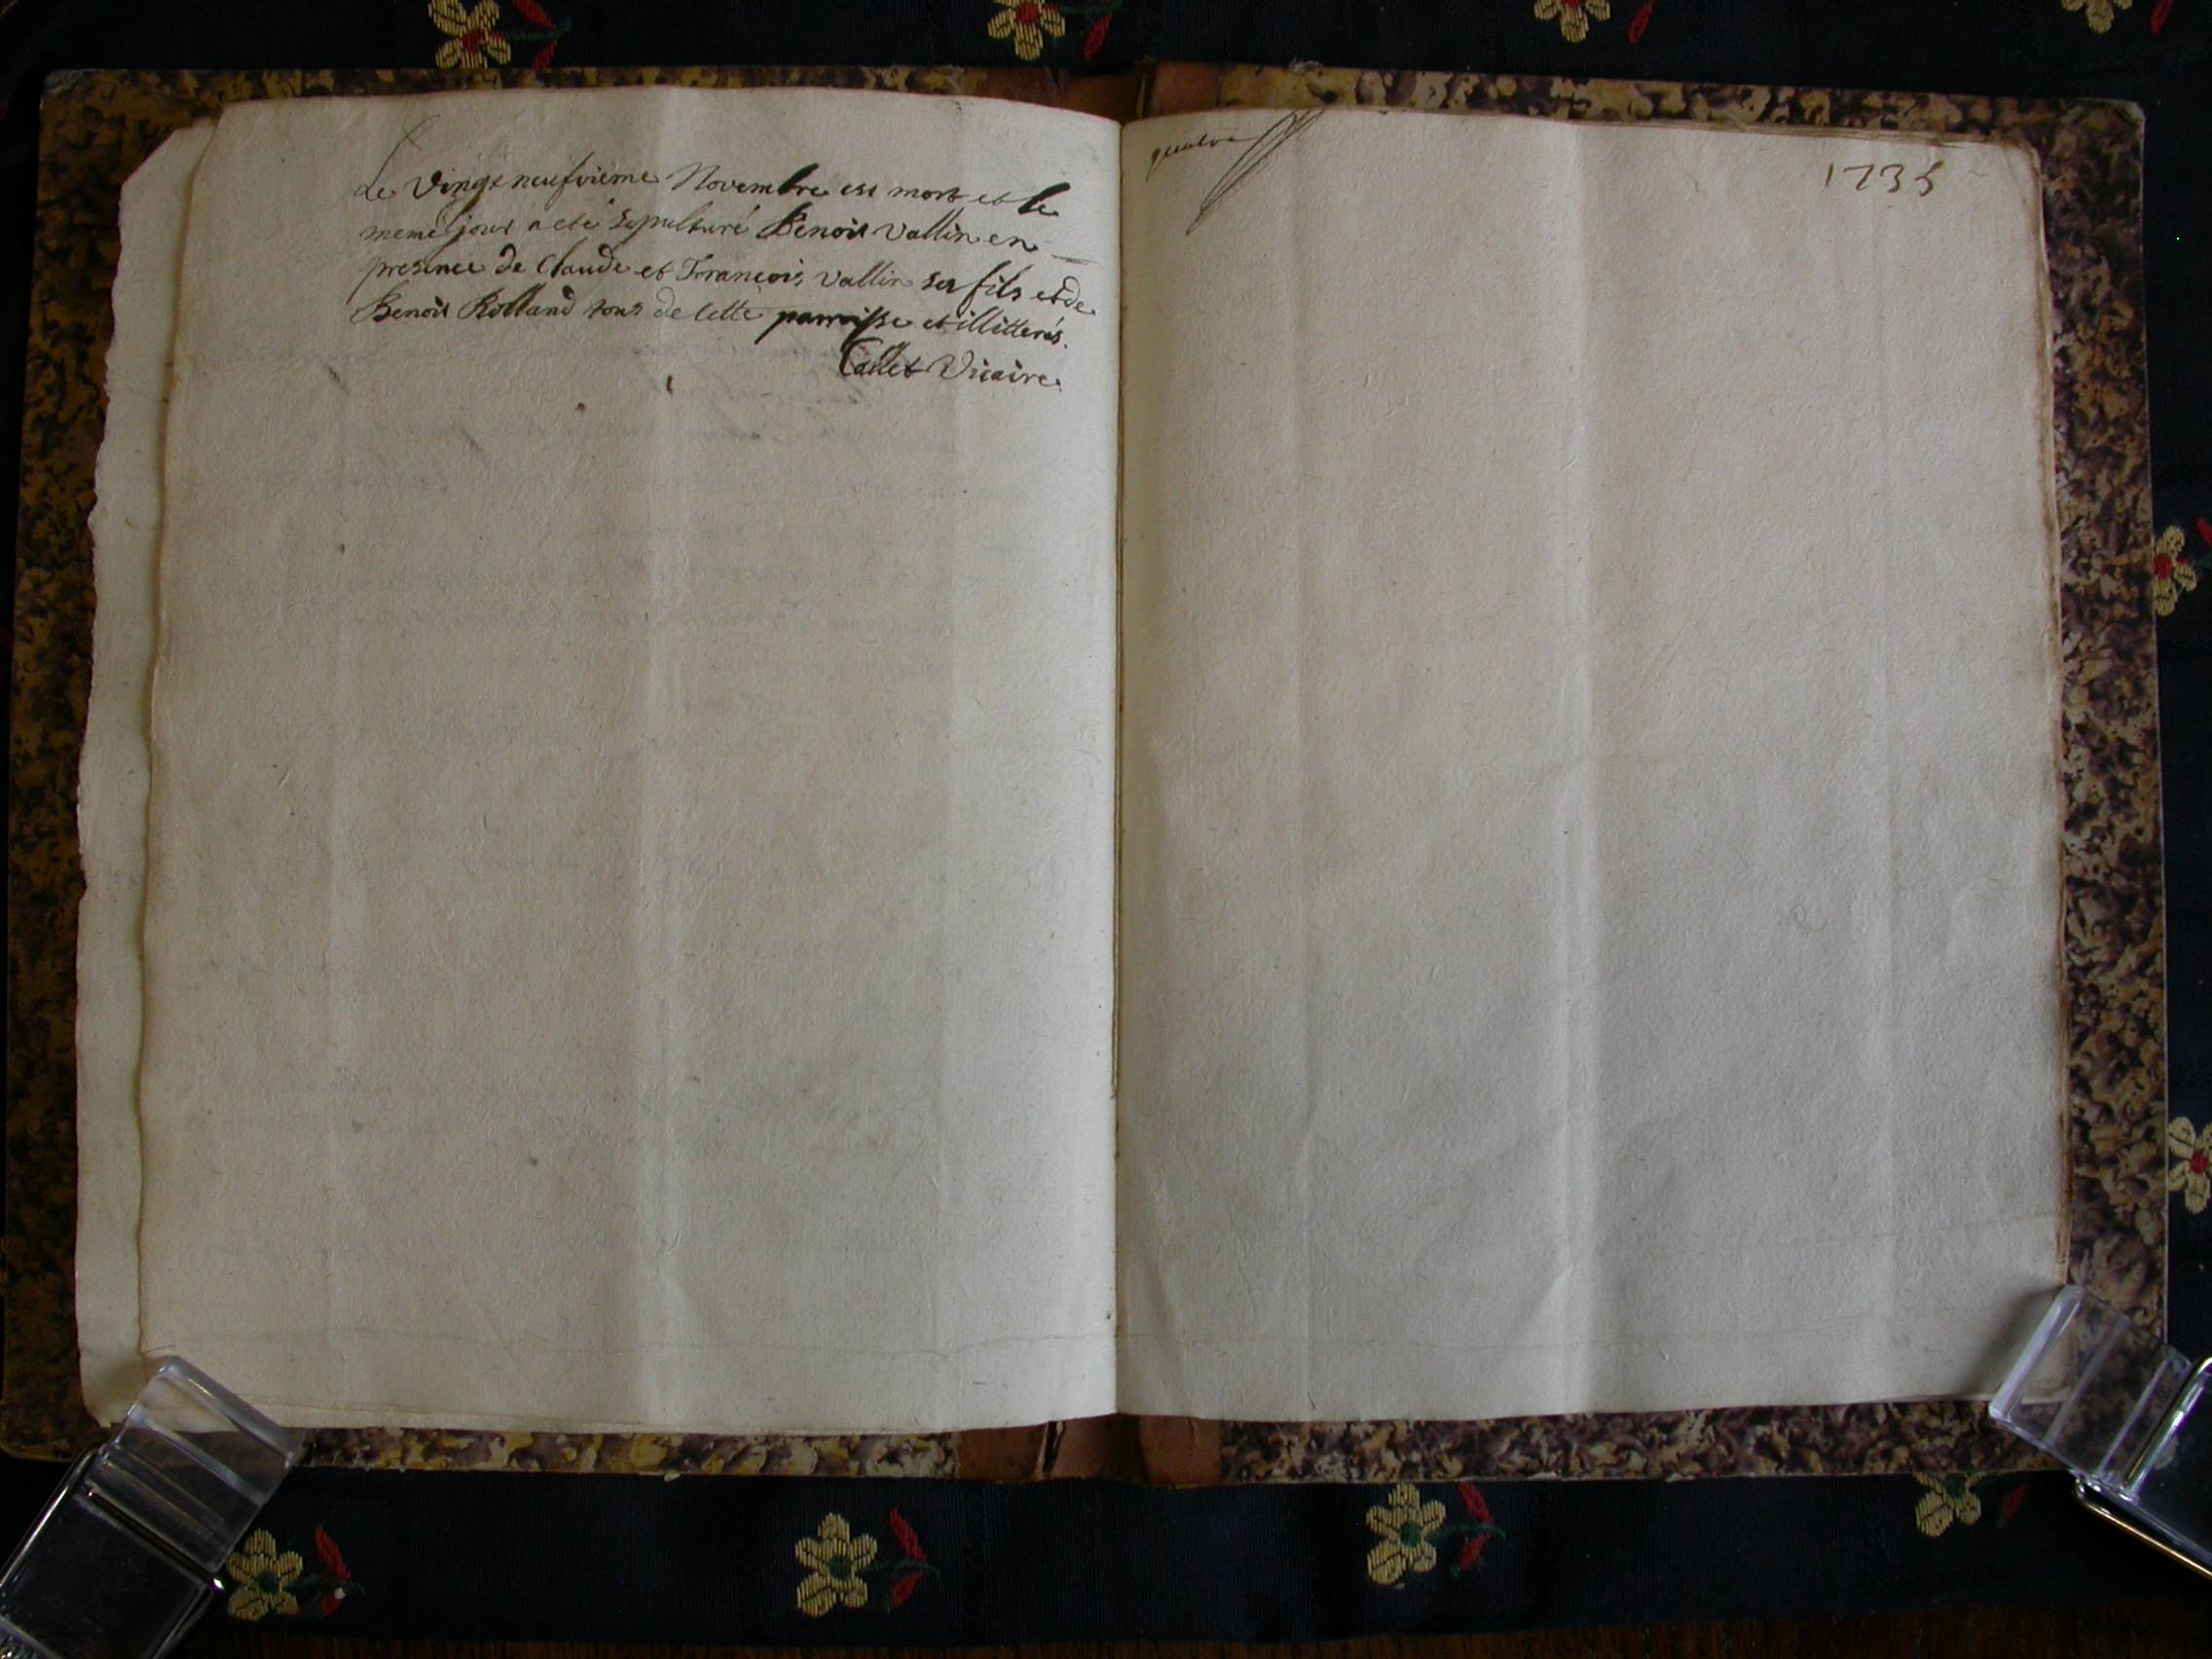 Le Vingt neufvieme Novembre est mort et le
meme jour a eté sepulturé Benoit Vallin en
presence de Claude et Francois Vallin ses fils et de
Benoit Rolland tous de cette parroisse et illitterés.
Caillet Vicaire.
1735